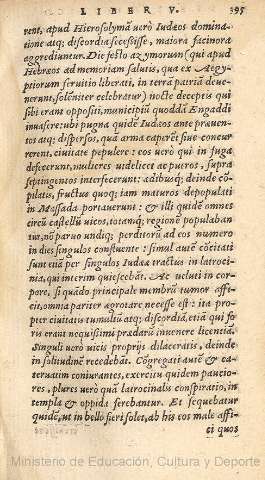 LIBER V. 395
rent, apud Hierosolymā verò Iudæos domina-
tione atq; discordia secessisse, maiora facinora
aggrediuntur. Die festo azymorum (qui apud
Hebræos ad memoriam salutis, qua ex Aegy-
ptiorum seruitio liberati, in terrā patriā deue-
nerunt, solēniter celebratur) nocte deceptis qui
sibi erant oppositi, municipiū quoddā Engaddi
inuasere: ubi pugna quidē Iudæos ante præuen-
tos atq; dispersos, quā arma caperēt siue concur
rerent, ciuitate pepulere: eos uerò qui in fuga
defecerunt, mulieres uidelicet ac pueros, supra
septingentos interfecerunt: ædibusq; deinde cō-
pilatis, fructus quoq; iam maturos depopulati
in Massada portauerunt: & illi quidē omnes
circū castellū uicos, totamq; regionē populaban
tur, nō paruo undiq; perditorū ad eos numero
in dies singulos confluente: simul autē cōcitati
sunt etiā per singulos Iudææ tractus in latroci-
nia, qui interim quiescebāt. Ac ueluti in cor-
pore, si quādo principale membrū tumor affi-
cit, omnia pariter ægrotare necesse est: ita pro-
pter ciuitatis tumultū atq; discordiā, etiā qui fo
ris erant nequissimi prædādi inuenere licentiā.
Singuli uerò uicis proprijs dilaceratis, deinde
in solitudinē recedebāt. Cōgregati autē & ca-
teruatim coniurantes, exercitu quidem paucio-
res, plures uerò quā latrocinalis conspiratio, in
templa & oppida ferebantur. Et sequebatur
quidē, ut in bello fieri solet, ab his eos male affi-
ci quos
Ministerio de Educación, Cultura y Deporte